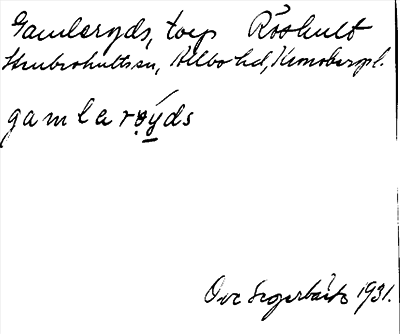 Gamleryds, torp Röshult
Stenbrohults sn, Allbo hd, Kronobergs l.
gamlarǿ̣y̲ds
Ove Segerbäck 1931.